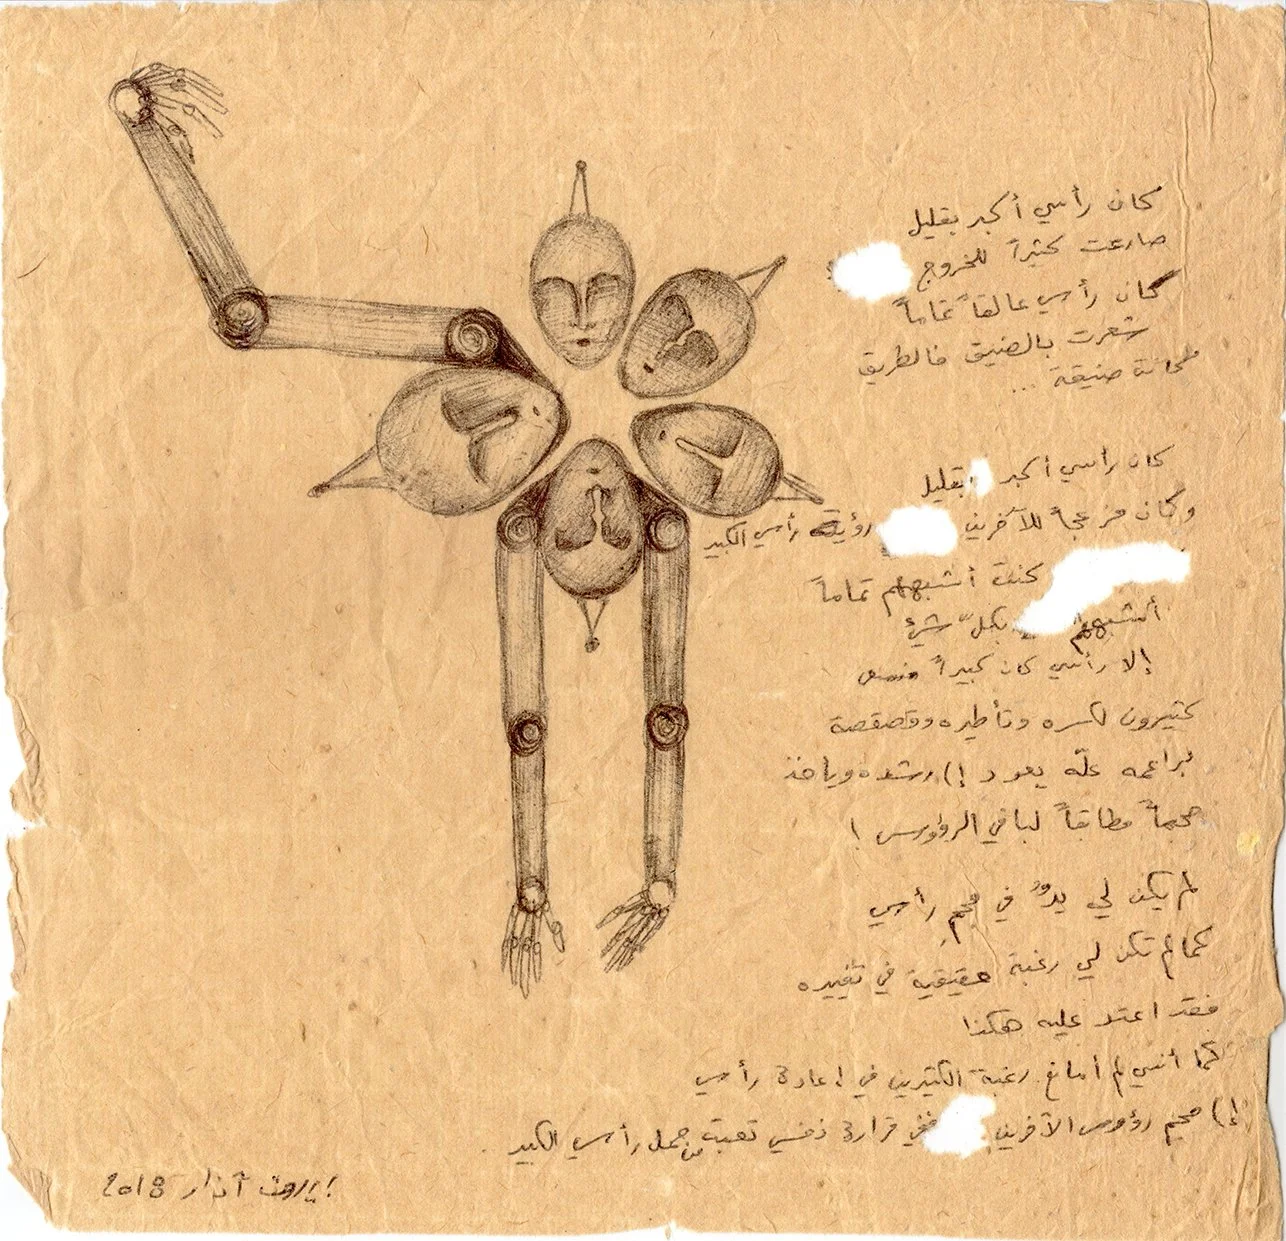 كان رأسي أكبر بقليل
صارعت كثيراً للخروج
كان رأسي عالقاً تماماً
شعرت بالضيق فالطريق
كانت ضيقة ...
كان رأسي أكبر بقليل
وكان مزعجاً للآخرين رؤية رأسي الكبير
كنت أشبههم تماماً
أشبههم بكل شيء
إلا رأسي كان كبيراً
كثيرون لكسره وتأطيره وقصقصة
براعمه علّه يعود إلى رشده ويأخذ
حجماً مطابقاً لباقي الرؤوس !
لم يكن لي يدٌ في حجم رأسي
كما لم تكن لي رغبة حقيقية في تغييره
فقد اعتدت عليه هكذا
كما أنني لم أمانع رغبة الكثيرين في إعادة رأسي
إلى حجم رؤوس الآخرين ففي قرارة نفسي تعبت من حمل رأسي الكبير .
بيروت آذار 2018